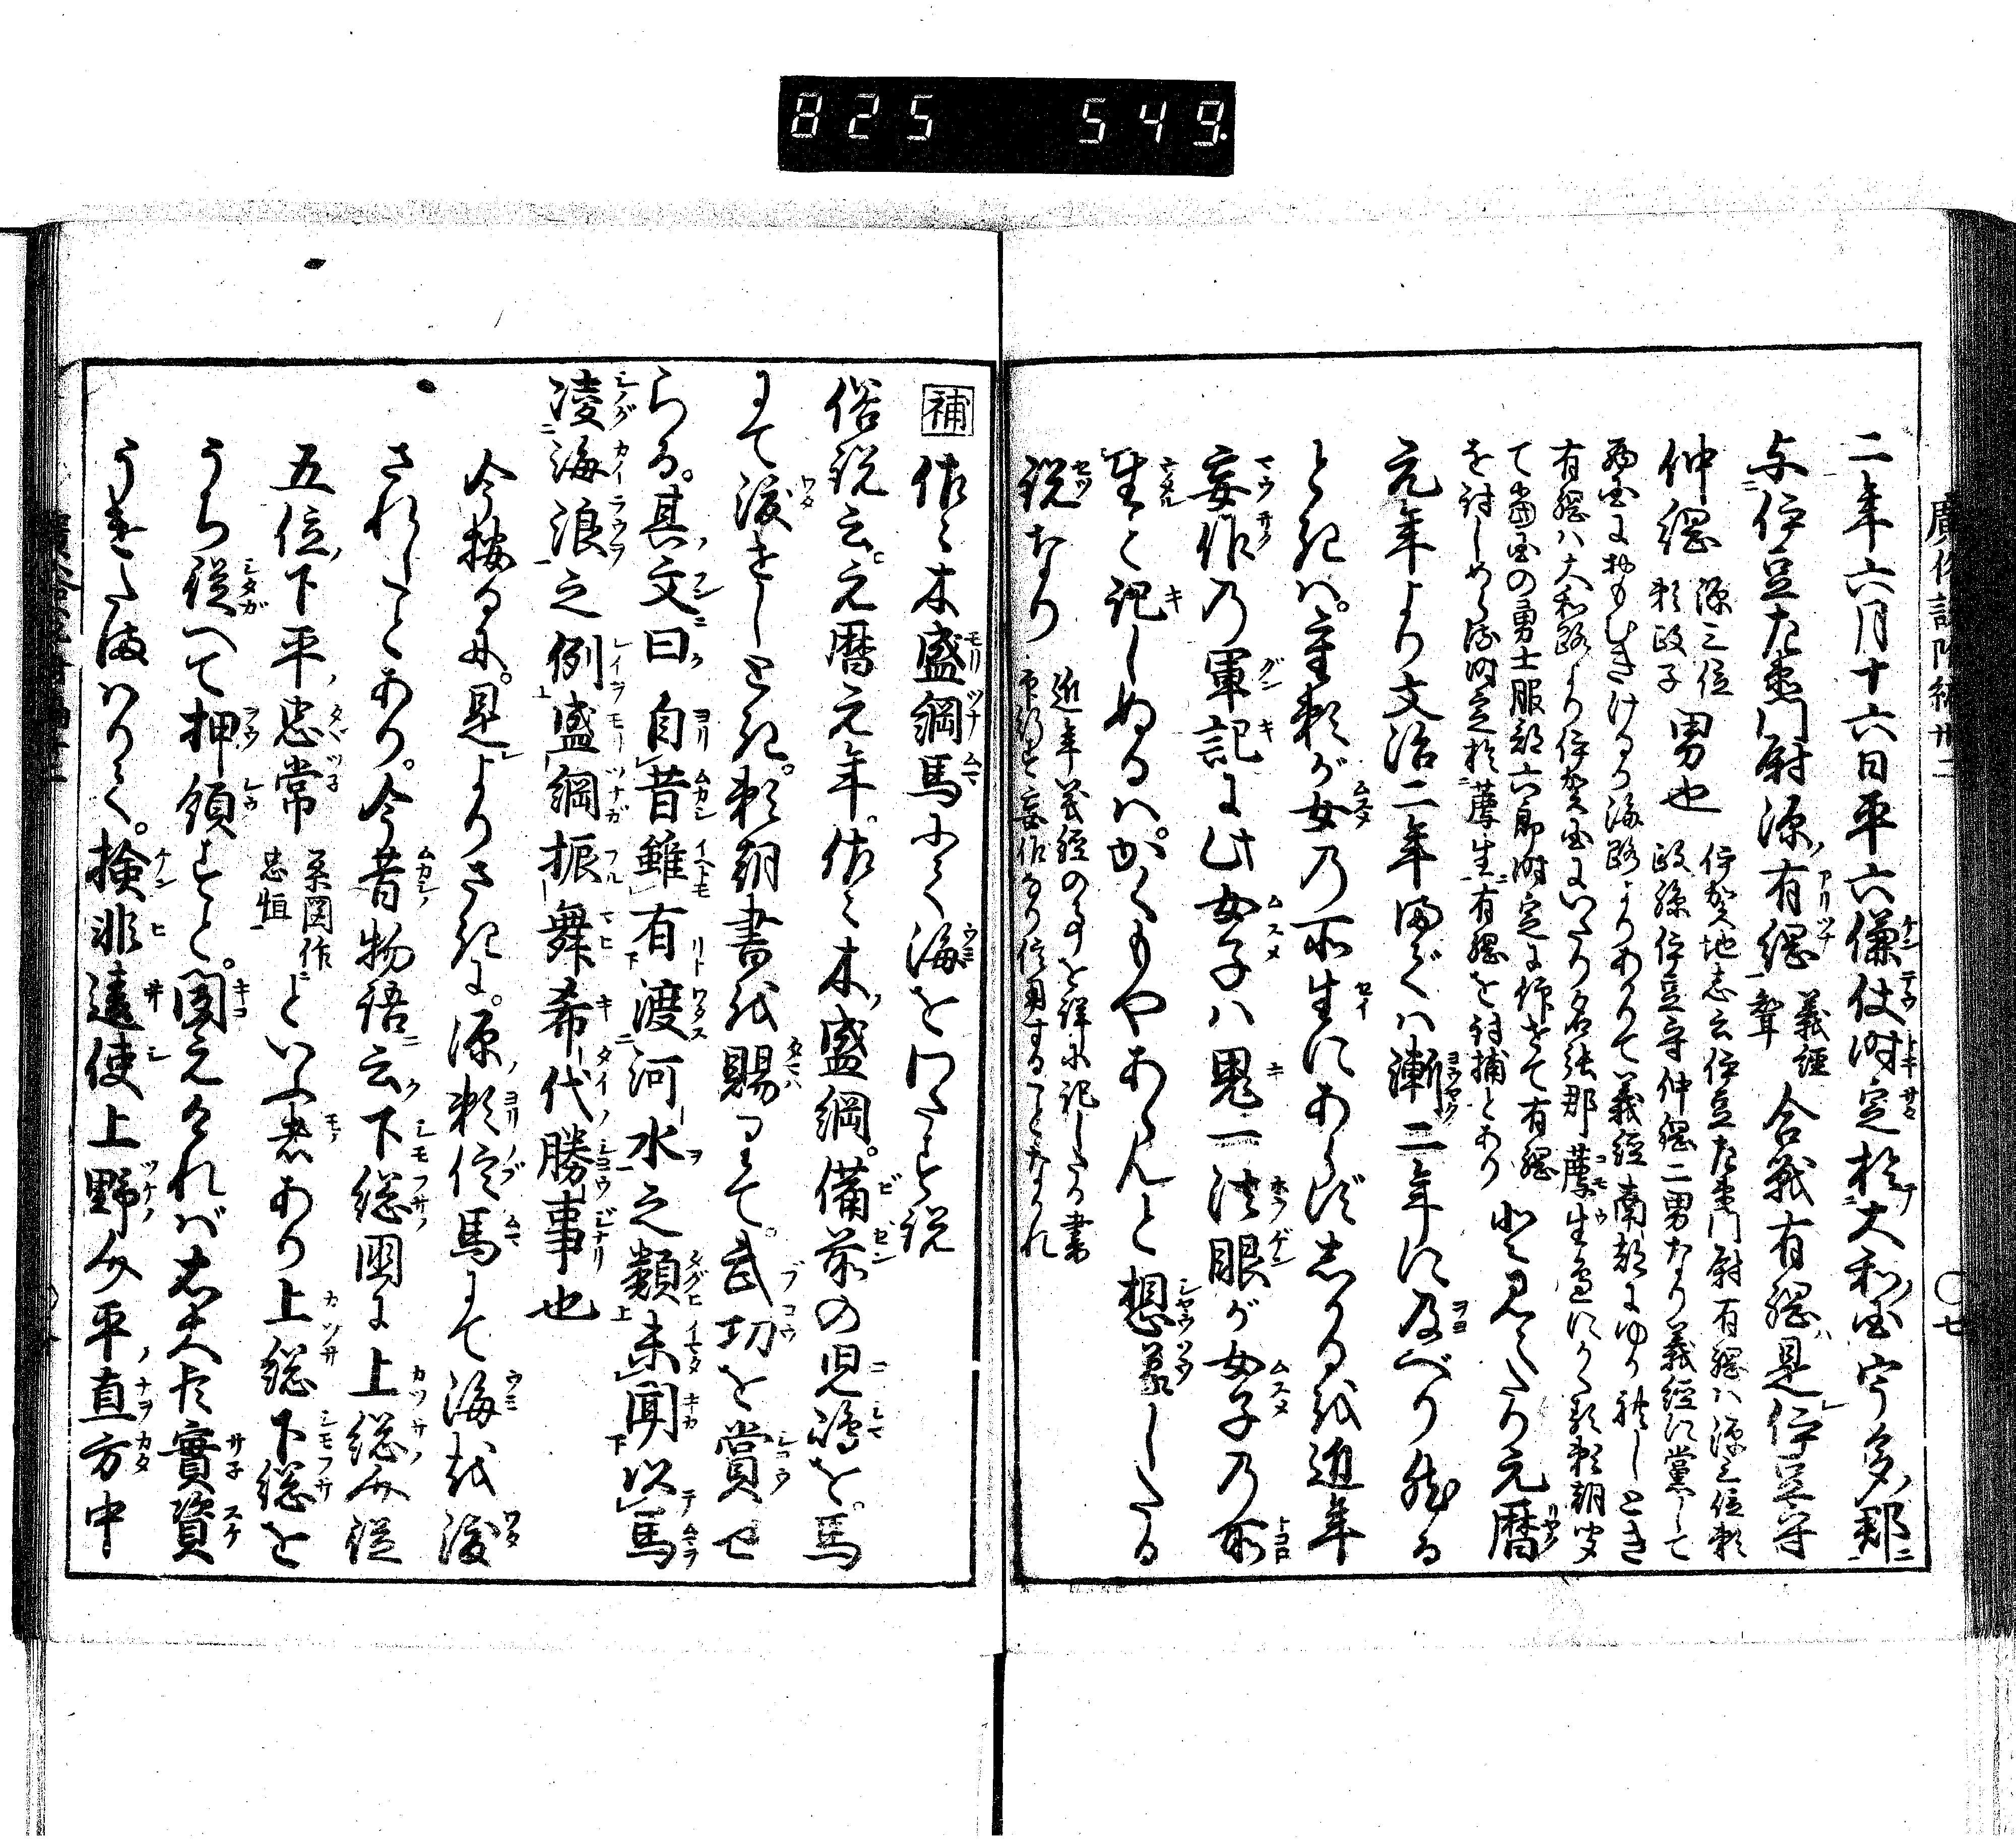 825 549
二年六月十六日平六傔仗時定於大和国宇多郡
与伊豆左衛門尉源有綱義経聟合戦有綱是伊豆守
仲綱源三位頼政子男也伊賀地志云伊豆左衛門尉有綱ハ源三位頼
政孫伊豆守仲綱二男なり義経に党して
西国におもむきけるか海路よりあかりて義経南都にゆか れしとき
有綱ハ大和路より伊賀国にいたり名張郡薦生邑にかくる頼朝聞
て当国の勇士服部六郎時定に作せて有綱
を討しめらる時定於薦生有綱を討捕とあり と見へたり元暦
元年より文治二年まではハ漸二年に及べり然る
ときハ重頼が女の所生にあらずしかるを近年
妄作の軍記に此女子ハ鬼一法眼が女子の所
生と記しぬるハかくもやあらんと想像したる
説なり近年義経の事を詳に記したる書
印行す妄作なり信用することなかれ
補 佐々木盛綱馬にて海をわたす説
俗説云元暦元年佐々木盛綱備前の児嶋を馬
にて渡せしとき頼朝書を賜りて武功を賞せ
らる其文曰自昔雖有渡河水之類未聞以馬
凌海浪之例盛綱振舞希代勝事也
今按るに是よりさきに源頼信馬にて海を渡
されしとあり今昔物語云下総国に上総介従
五位下平忠常系図作忠恒といふ者あり上総下総を
うち従へて押領すと聞えければ右大臣實資
うけたまはりて検非違使上野介平直方中